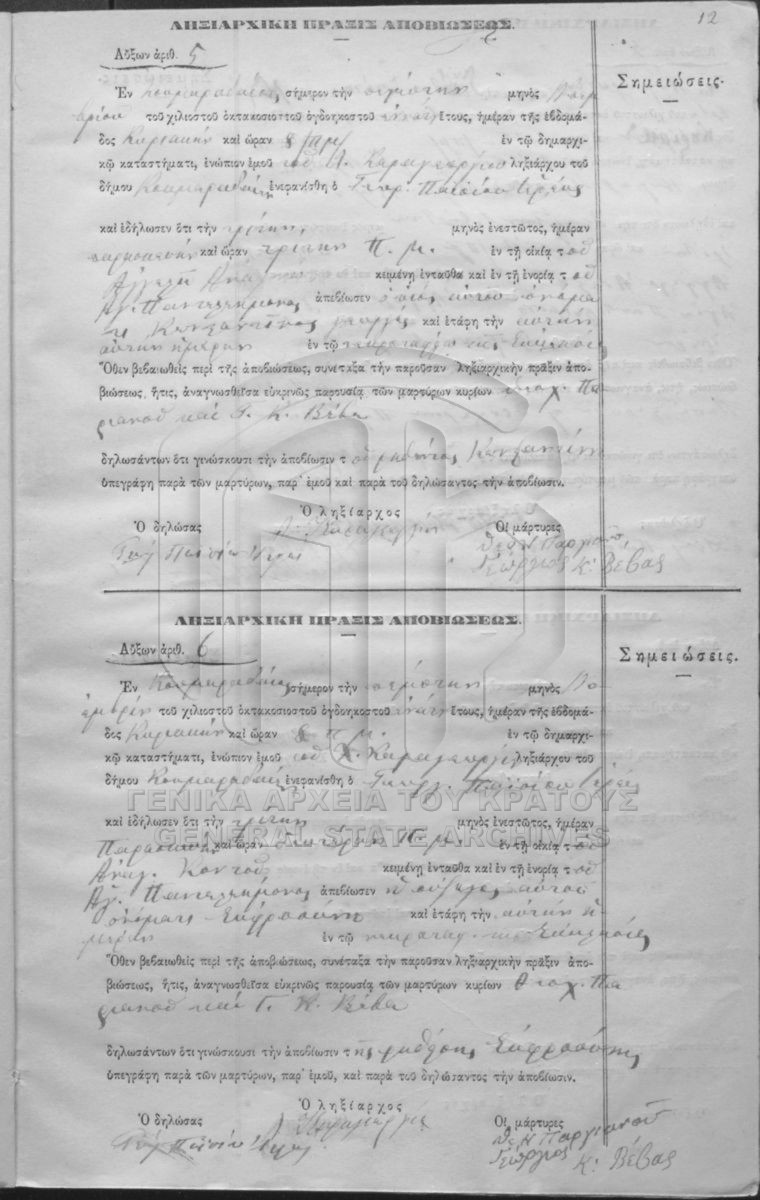 12
ΛΗΞΙΑΡΧΙΚΗ ΠΡΑΞΙΣ ΑΠΟΒΙΩΣΕΩΣ.
Αὔξων ἀριθ. 5
Σημειώσεις.
Ἐν σήμερον τὴν πέμπτην μηνὸς
βρίου τοῦ χιλιοστοῦ ὀκτακοσιοστοῦ ὀγδοηκοστοῦ ἐνάτου ἔτους, ἡμέραν τῆς ἑβδομά-
δος Κυριακὴν καὶ ὥραν 8 π.μ. ἐν τῷ δημαρχι-
κῷ καταστήματι, ἐνώπιον ἐμοῦ τοῦ Καραγεωργίου ληξιάρχου τοῦ
δήμου Κουμαραδαίων ἐνεφανίσθη ὁ Γεώρ. Παϊσίου Ἱερεὺς
καὶ ἐδήλωσεν ὅτι τὴν τρίτην μηνὸς ἐνεστῶτος, ἡμέραν
παρασκευὴν καὶ ὥραν τρίτην π.μ. ἐν τῇ οἰκίᾳ τοῦ
κειμένῃ ἐνταῦθα καὶ ἐν τῇ ἐνορίᾳ τοῦ
Ἁγ. Παντελεήμονος ἀπεβίωσεν ὁ υἱὸς αὐτοῦ ὀνόμα
τι Κωνσταντῖνος καὶ ἐτάφη τὴν αὐτὴν
ἡμέραν ἐν τῷ νεκροταφείῳ τῆς Ἐκκλησίας
Ὅθεν βεβαιωθεὶς περὶ τῆς ἀποβιώσεως, συνέταξα τὴν παροῦσαν ληξιαρχικὴν πρᾶξιν ἀπο-
βιώσεως, ἥτις, ἀναγνωσθεῖσα εὐκρινῶς παρουσίᾳ τῶν μαρτύρων κυρίων Θεοχ. Πα
ργιανοῦ καὶ Γ. Κ. Βέβα
δηλωσάντων ὅτι γινώσκουσι τὴν ἀποβίωσιν τοῦ ῥηθέντος Κωνσταντίνου
ὑπεγράφη παρὰ τῶν μαρτύρων, παρ' ἐμοῦ καὶ παρὰ τοῦ δηλώσαντος τὴν ἀποβίωσιν.
Ὁ ληξίαρχος
Ὁ δηλώσας Καραγεωργίου Οἱ μάρτυρες
Γεώρ Παϊσίου Ἱερεὺς Θεοχ. Ν Παργιανοῦ
Γεώργιος Κ: Βέβας
ΛΗΞΙΑΡΧΙΚΗ ΠΡΑΞΙΣ ΑΠΟΒΙΩΣΕΩΣ.
Αὔξων ἀριθ. 6
Σημειώσεις.
Ἐν Κουμαραδαίοις σήμερον τὴν πέμπτην μηνὸς Νο
εμβρίου τοῦ χιλιοστοῦ ὀκτακοσιοστοῦ ὀγδοηκοστοῦ ἐνάτου ἔτους, ἡμέραν τῆς ἑβδομά-
δος Κυριακὴν καὶ ὥραν 8 π.μ. ἐν τῷ δημαρχι-
κῷ καταστήματι, ἐνώπιον ἐμοῦ τοῦ Καραγεωργίου ληξιάρχου τοῦ
δήμου Κουμαραδαίων ἐνεφανίσθη ὁ Γεώργ. Παϊσίου Ἱερεὺς
ΓΕΝΙΚΑ ΑΡΧΕΙΑ ΤΟΥ ΚΡΑΤΟΥΣ
GENERAL STATE ARCHIVES
καὶ ἐδήλωσεν ὅτι τὴν τρίτην μηνὸς ἐνεστῶτος, ἡμέραν
Παρασκευὴν καὶ ὥραν π.μ. ἐν τῇ οἰκίᾳ τοῦ
Ἀναγ. Κοντοῦ κειμένῃ ἐνταῦθα καὶ ἐν τῇ ἐνορίᾳ τοῦ
Ἁγ. Παντελεήμονος ἀπεβίωσεν ἡ σύζυγος αὐτοῦ
ὀνόματι Εὐφροσύνη καὶ ἐτάφη τὴν αὐτὴν ἡ
μέραν ἐν τῷ νεκροταφ. τῆς Ἐκκλησίας
Ὅθεν βεβαιωθεὶς περὶ τῆς ἀποβιώσεως, συνέταξα τὴν παροῦσαν ληξιαρχικὴν πρᾶξιν ἀπο-
βιώσεως, ἥτις, ἀναγνωσθεῖσα εὐκρινῶς παρουσίᾳ τῶν μαρτύρων κυρίων Θεοχ. Πα
ργιανοῦ καὶ Γ. Κ. Βέβα
δηλωσάντων ὅτι γινώσκουσι τὴν ἀποβίωσιν τῆς ῥηθείσης Εὐφροσύνης
ὑπεγράφη παρὰ τῶν μαρτύρων, παρ' ἐμοῦ, καὶ παρὰ τοῦ δηλώσαντος τὴν ἀποβίωσιν.
Ὁ ληξίαρχος
Ὁ δηλώσας Καραγεωργίου Οἱ μάρτυρες
Γεώρ Παϊσίου Ἱερεὺς Θεοχ. Ν Παργιανοῦ
Γεώργιος Κ: Βέβας